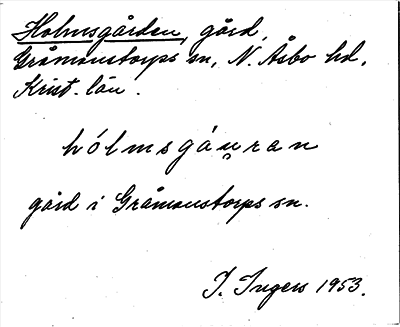 Holmsgården, gård,
Gråmanstorps sn, N. Åsbo hd,
Krist. län.
hólmsgáu̯ran
gård i Gråmanstorps sn.
I. Ingers 1953.